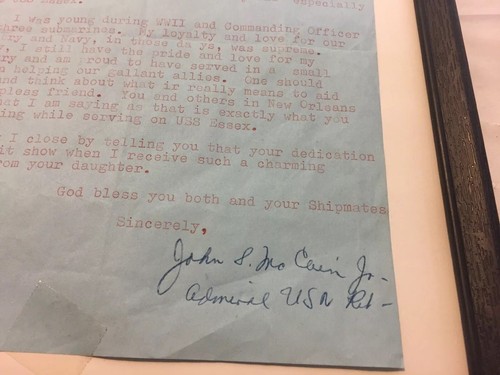 especially
USS Essex.
I was young during WWII and Commanding Officer
three submarines. My loyalty and love for our
ry and Navy, in those da ys, was supreme.
y, I still have the pride and love for my
ry and am roud to have served in a small
n helping our gallant allies. One should
and think about what ir really means to aid
pless friend. You and others in New Orleans
hat I am saying as that is exactly what you
ing while serving on USS Essex.
I close by telling you that your dedication
it show when I receive such a charming
from your daughter.
God bless you both and your Shipmates
Sincerely,
John S. McCain Jr-
Admiral USN Ret-